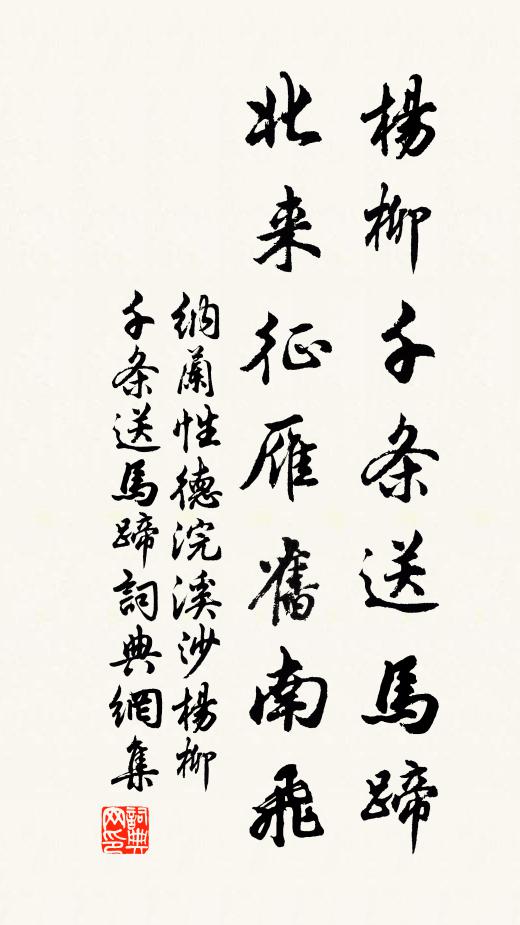 楊柳千条送馬蹄
北来征雁舊南飛
納蘭性德浣溪沙楊柳
千条送馬蹄詞典網集
詞典
网印